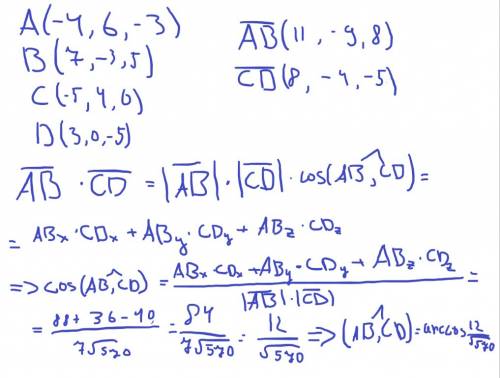 A(-4, 6, -3)
B(7, -3, 5)
C(-5, 4, 0)
D(3, 0, -5)
AB(11, -9, 8)
CD(8, -4, -5)
AB · CD = |AB| · |CD| · cos(AB, CD) =
= ABx · CDx + ABy · CDy + ABz · CDz
=> cos(AB, CD) = (ABx · CDx + ABy · CDy + ABz · CDz) / (|AB| · |CD|) =
= (88 + 36 - 40) / (7√570) = 84 / (7√570) = 12 / √570 => (AB, CD) = arccos 12/√570